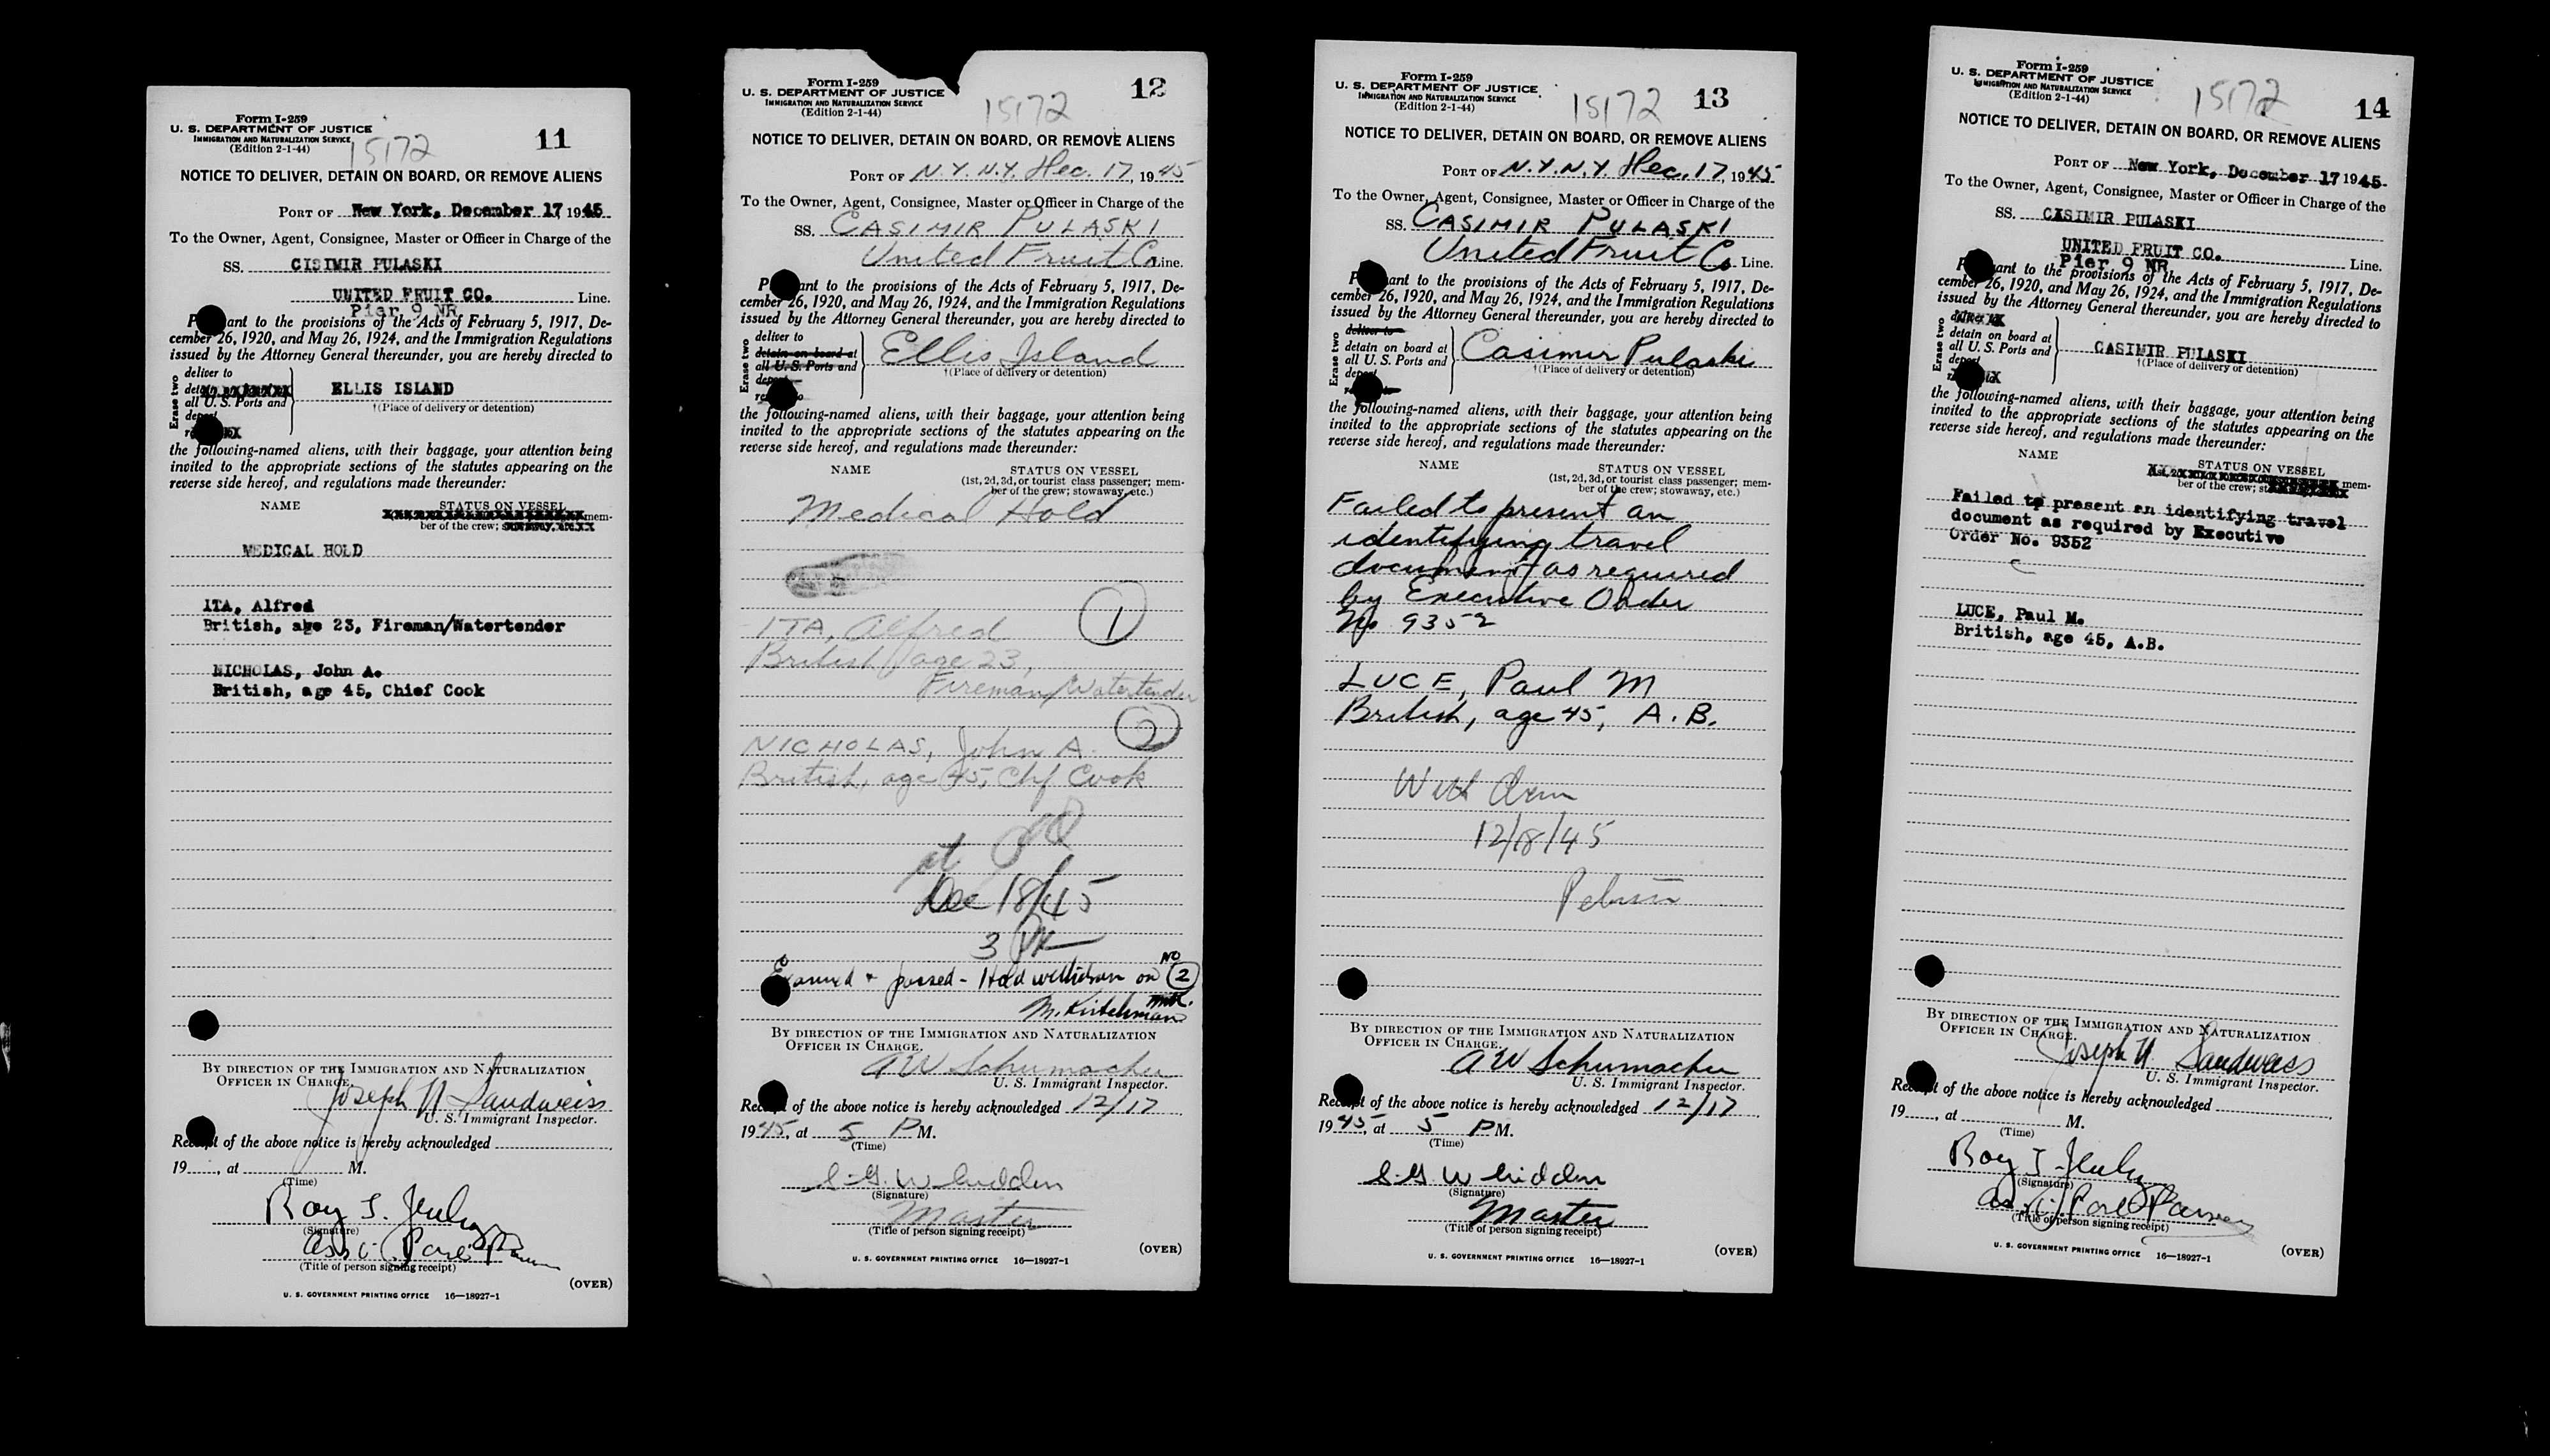 Form I-259
U. S. DEPARTMENT OF JUSTICE
IMMIGRATION AND NATURALIZATION SERVICE
(Edition 2-1-44)
15172
11
NOTICE TO DELIVER, DETAIN ON BOARD, OR REMOVE ALIENS
PORT OF New York, December 17 1945
To the Owner, Agent, Consignee, Master or Officer in Charge of the
SS. CISIMIR PULASKI
UNITED FRUIT CO. Line.
Pier 9 NR
P ant to the provisions of the Acts of February 5, 1917, De-
cember 26, 1920, and May 26, 1924, and the Immigration Regulations
issued by the Attorney General thereunder, you are hereby directed to
Erase two
deliver to
all U. S. Ports and
ELLIS ISLAND
†(Place of delivery or detention)
the following-named aliens, with their baggage, your attention being
invited to the appropriate sections of the statutes appearing on the
reverse side hereof, and regulations made thereunder:
NAME STATUS ON VESSEL
mem-
ber of the crew;
MEDICAL HOLD
ITA, Alfred
British, age 23, Fireman/Watertender
NICHOLAS, John A.
British, age 45, Chief Cook
BY DIRECTION OF THE IMMIGRATION AND NATURALIZATION
OFFICER IN CHARGE.
Joseph N Sandweiss
U. S. Immigrant Inspector.
Rec t of the above notice is hereby acknowledged
19 , at M.
(Time)
Roy
(Signature)
(Title of person signing receipt)
(OVER)
U. S. GOVERNMENT PRINTING OFFICE 16—18927-1
Form I-259
U. S. DEPARTMENT OF JUSTICE
IMMIGRATION AND NATURALIZATION SERVICE
(Edition 2-1-44)
15172
12
NOTICE TO DELIVER, DETAIN ON BOARD, OR REMOVE ALIENS
PORT OF N.Y. N.Y. Dec. 17, 1945
To the Owner, Agent, Consignee, Master or Officer in Charge of the
SS. CASIMIR PULASKI
United Fruit Co Line.
P ant to the provisions of the Acts of February 5, 1917, De-
cember 26, 1920, and May 26, 1924, and the Immigration Regulations
issued by the Attorney General thereunder, you are hereby directed to
Erase two
deliver to
detain on board at
all U. S. Ports and
Ellis Island
†(Place of delivery or detention)
the following-named aliens, with their baggage, your attention being
invited to the appropriate sections of the statutes appearing on the
reverse side hereof, and regulations made thereunder:
NAME STATUS ON VESSEL
(1st, 2d, 3d, or tourist class passenger; mem-
ber of the crew; stowaway, etc.)
Medical Hold
ITA, Alfred 1
British, age 23,
Fireman/Watertender
2
NICHOLAS, John A.
British, age 45, Chf Cook
at
Dec 18/45
3 PM
passed - Hold withdrawn on No 2
BY DIRECTION OF THE IMMIGRATION AND NATURALIZATION
OFFICER IN CHARGE.
A W Schumacher
U. S. Immigrant Inspector.
Rec t of the above notice is hereby acknowledged 12/17
1945, at 5 P M.
(Time)
(Signature)
Master
(Title of person signing receipt)
(OVER)
U. S. GOVERNMENT PRINTING OFFICE 16—18927-1
Form I-259
U. S. DEPARTMENT OF JUSTICE
IMMIGRATION AND NATURALIZATION SERVICE
(Edition 2-1-44)
15172
13
NOTICE TO DELIVER, DETAIN ON BOARD, OR REMOVE ALIENS
PORT OF N.Y. N.Y. Dec. 17, 1945
To the Owner, Agent, Consignee, Master or Officer in Charge of the
SS. CASIMIR PULASKI
United Fruit Co Line.
P ant to the provisions of the Acts of February 5, 1917, De-
cember 26, 1920, and May 26, 1924, and the Immigration Regulations
issued by the Attorney General thereunder, you are hereby directed to
Erase two
deliver to
detain on board at
all U. S. Ports and
Casimir Pulaski
†(Place of delivery or detention)
the following-named aliens, with their baggage, your attention being
invited to the appropriate sections of the statutes appearing on the
reverse side hereof, and regulations made thereunder:
NAME STATUS ON VESSEL
(1st, 2d, 3d, or tourist class passenger; mem-
ber of the crew; stowaway, etc.)
Failed to present an
identifying travel
document as required
by Executive Order
No 9352
LUCE, Paul M
British, age 45, A.B.
12/18/45
BY DIRECTION OF THE IMMIGRATION AND NATURALIZATION
OFFICER IN CHARGE.
A W Schumacher
U. S. Immigrant Inspector.
Rec t of the above notice is hereby acknowledged 12/17
1945, at 5 P M.
(Time)
(Signature)
Master
(Title of person signing receipt)
(OVER)
U. S. GOVERNMENT PRINTING OFFICE 16—18927-1
Form I-259
U. S. DEPARTMENT OF JUSTICE
IMMIGRATION AND NATURALIZATION SERVICE
(Edition 2-1-44)
15172
14
NOTICE TO DELIVER, DETAIN ON BOARD, OR REMOVE ALIENS
PORT OF New York, December 17 1945
To the Owner, Agent, Consignee, Master or Officer in Charge of the
SS. CASIMIR PULASKI
UNITED FRUIT CO. Line.
Pier 9 NR
P ant to the provisions of the Acts of February 5, 1917, De-
cember 26, 1920, and May 26, 1924, and the Immigration Regulations
issued by the Attorney General thereunder, you are hereby directed to
Erase two
detain on board at
all U. S. Ports and
CASIMIR PULASKI
†(Place of delivery or detention)
the following-named aliens, with their baggage, your attention being
invited to the appropriate sections of the statutes appearing on the
reverse side hereof, and regulations made thereunder:
NAME STATUS ON VESSEL
mem-
ber of the crew;
Failed to present an identifying travel
document as required by Executive
Order No. 9352
LUCE, Paul M.
British, age 45, A.B.
BY DIRECTION OF THE IMMIGRATION AND NATURALIZATION
OFFICER IN CHARGE.
Joseph N Sandweiss
U. S. Immigrant Inspector.
Rec t of the above notice is hereby acknowledged
19 , at M.
(Time)
Roy
(Signature)
(Title of person signing receipt)
(OVER)
U. S. GOVERNMENT PRINTING OFFICE 16—18927-1